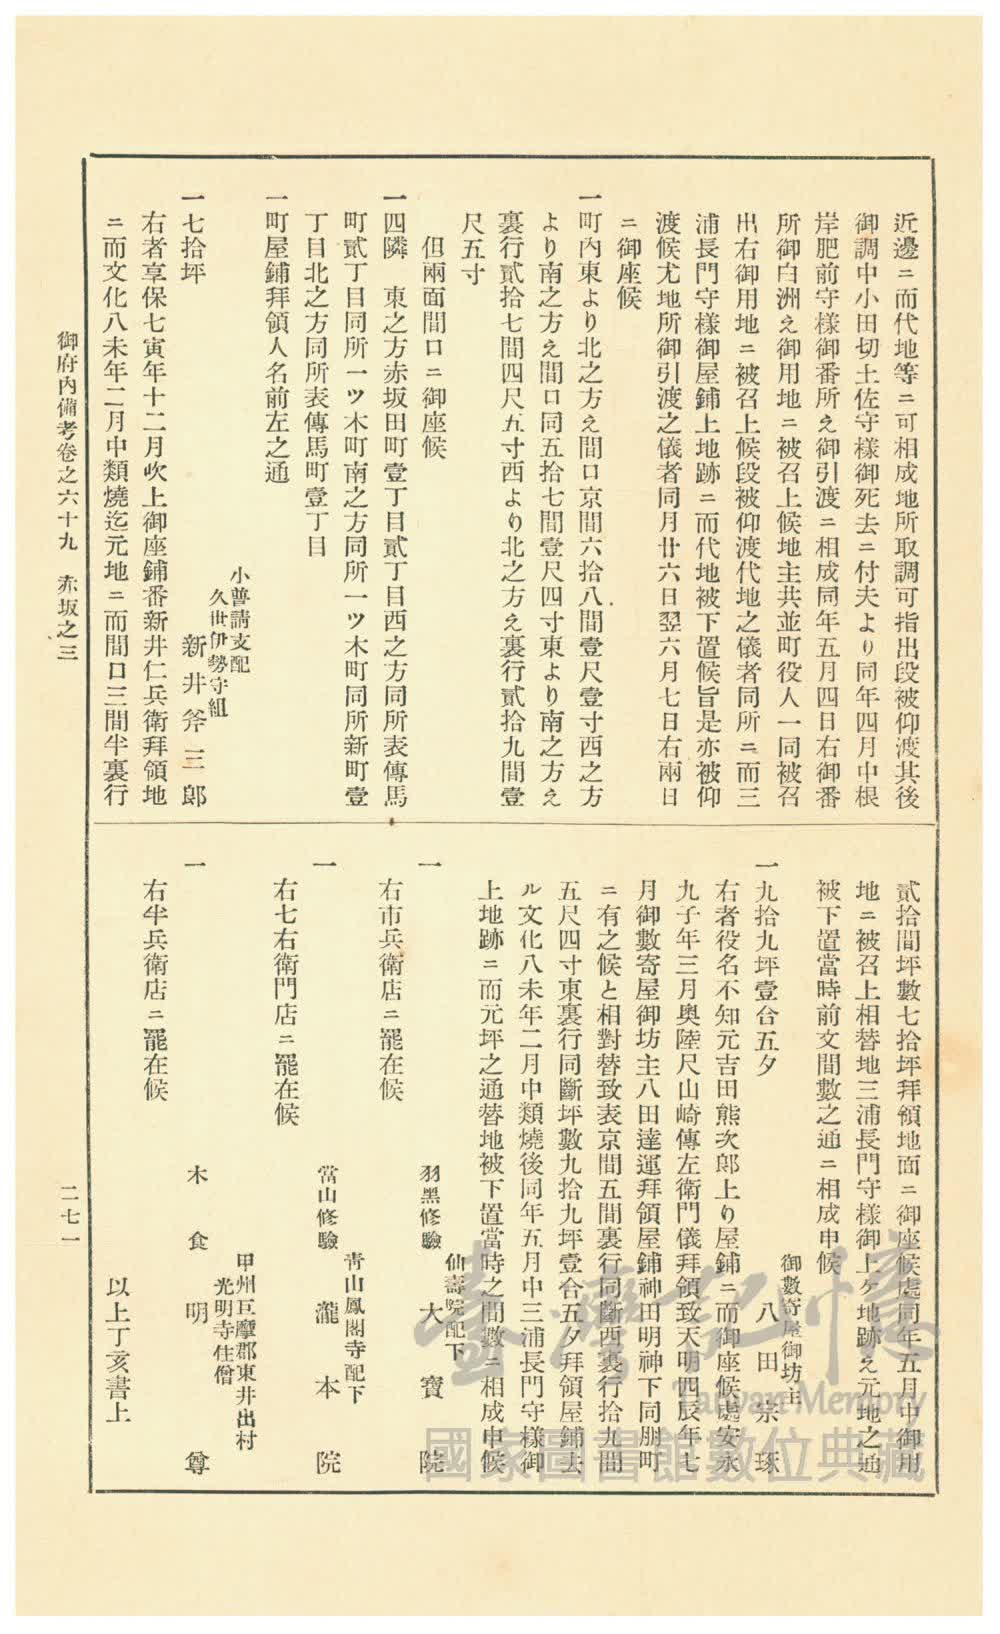 近邊ニ而代地等ニ可相成地所取調可指出段被仰渡其後
御調中小田切土佐守樣御死去ニ付夫より同年四月中根
岸肥前守樣御番所え御引渡ニ相成同年五月四日右御番
所御白洲え御用地ニ被召上候地主共並町役人一同被召
出右御用地ニ被召上候段被仰渡代地之儀者同所ニ而三
浦長門守樣御屋鋪上地跡ニ而代地被下置候旨是亦被仰
渡候尤地所御引渡之儀者同月廿六日翌六月七日右兩日
ニ御座候
一町內東より北之方え間口京間六拾八間壹尺壹寸西之方
より南之方え間口同五拾七間壹尺四寸東より南之方え
裏行貳拾七間四尺五寸西より北之方え裏行貳拾九間壹
尺五寸
但兩面間口ニ御座候
一四隣　東之方赤坂田町壹丁目貳丁目西之方同所表傳馬
町貳丁目同所一ツ木町南之方同所一ツ木町同所新町壹
丁目北之方同所表傳馬町壹丁目
一町屋鋪拜領人名前左之通
小普請支配
久世伊勢守組
一七拾坪　新井斧三郞
右者享保七寅年十二月吹上御座鋪番新井仁兵衛拜領地
ニ而文化八未年二月中類燒迄元地ニ而間口三間半裏行
貳拾間坪數七拾坪拜領地面ニ御座候處同年五月中御用
地ニ被召上相替地三浦長門守樣御上ケ地跡え元地之通
被下置當時前文間數之通ニ相成申候
御數寄屋御坊主
一九拾九坪壹合五夕　八田宗琢
右者役名不知元吉田熊次郞上り屋鋪ニ而御座候處安永
九子年三月奧陸尺山崎傳左衛門儀拜領致天明四辰年七
月御數寄屋御坊主八田達運拜領屋鋪神田明神下同朋町
ニ有之候と相對替致表京間五間裏行同斷西裏行拾九間
五尺四寸東裏行同斷坪數九拾九坪壹合五夕拜領屋鋪去
ル文化八未年二月中類燒後同年五月中三浦長門守樣御
上地跡ニ而元坪之通替地被下置當時之間數ニ相成申候
仙壽院配下
一　羽黑修驗　大寶院
右市兵衛店ニ罷在候
靑山鳳閣寺配下
一　當山修驗　瀧本院
右七右衛門店ニ罷在候
甲州巨摩郡東井出村
光明寺住僧
一　木食　明尊
右半兵衛店ニ罷在候
以上丁亥書上
御府內備考卷之六十九　赤坂之三
二七一
臺灣記憶
Taiwan Memory
國家圖書館數位典藏